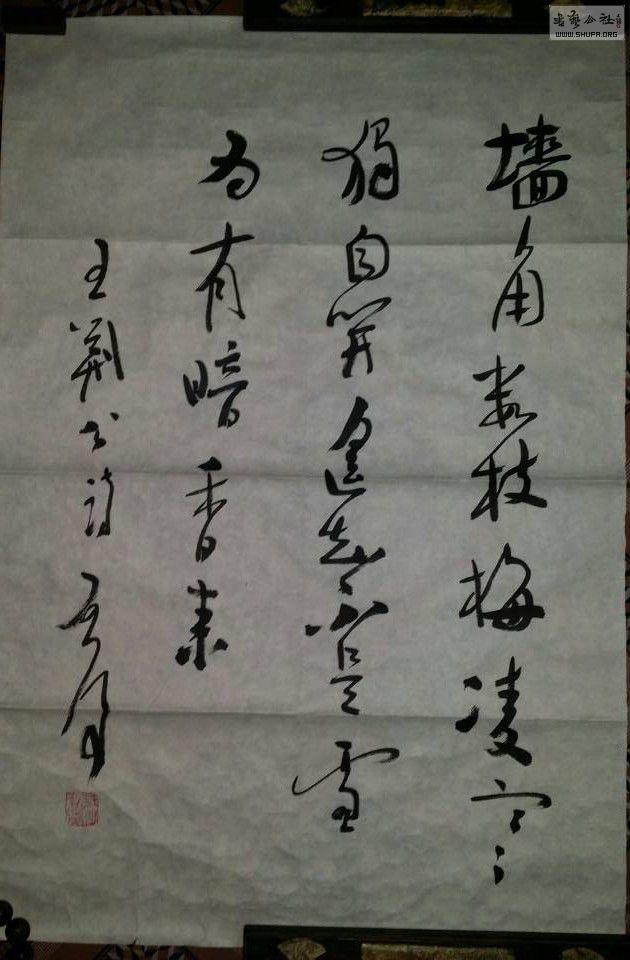 墙角数枝梅凌寒
独自开遥知不是雪
为有暗香来
王荆公诗
书艺公社
WWW.SHUFA.ORG